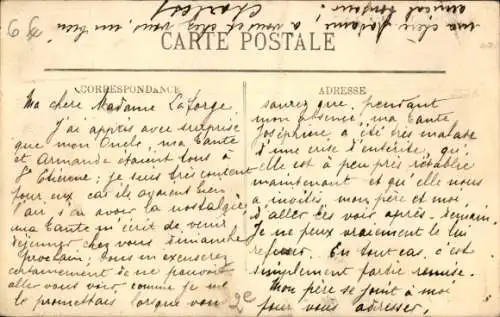 ma chère Madame ! à vous et chez vous, un bien
amical bonjour.
Charles
CARTE POSTALE
CORRESPONDANCE
Ma chère Madame Laforge
J'ai appris avec surprise
que mon Oncle, ma Tante
et Armande étaient tous à
St Etienne ; je suis très content
pour eux car ils avaient bien
l'air d'en avoir la nostalgie,
ma Tante m'écrit de venir
déjeuner chez vous dimanche
prochain ; vous m'excuserez
certainement de ne pouvoir
aller vous voir comme je me
le promettais lorsque vous
2e
ADRESSE
saurez que, pendant
mon absence, ma tante
Joséphine, a été très malade
d'une crise d'entérite, qu'
elle est à peu près rétablie
maintenant et qu'elle nous
a invités, mon père et moi
d'aller les voir après-demain.
Je ne peux vraiement le lui
refuser. En tout cas, c'est
simplement partie remise.
Mon père se joint à moi
pour vous adresser,